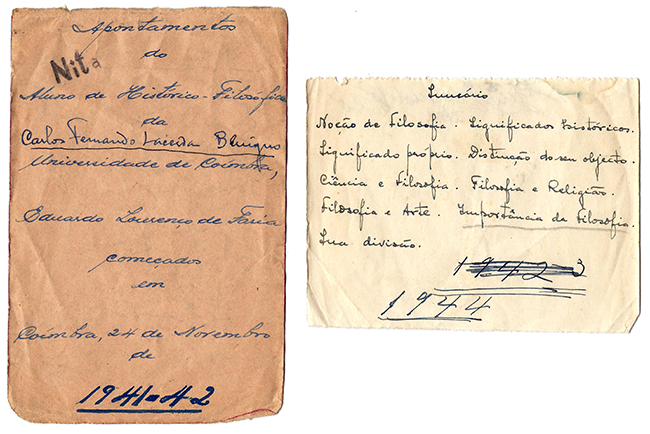 Apontamentos
do
Nita
Aluno de Histórico-Filosóficas
da
Carlos Fernando Lacerda Benigno
Universidade de Coimbra,
Eduardo Lourenço de Faria
começados
em
Coimbra, 24 de Novembro
de
1941-42
Sumário
Noção de Filosofia. Significados históricos.
Significado próprio. Distinção do seu objecto.
Ciência e Filosofia. Filosofia e Religião.
Filosofia e Arte. Importância da Filosofia.
Sua divisão.
1942-3
1944